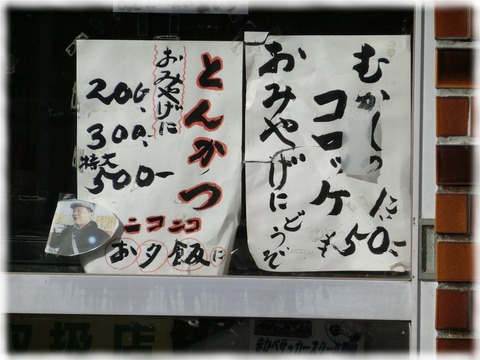 むかしの
コロッケ
1こ 50-
おみやげに
どうぞ
とんかつ
おみやげに
200
300-
特大
500-
ニコニコ
お夕飯に
取扱店